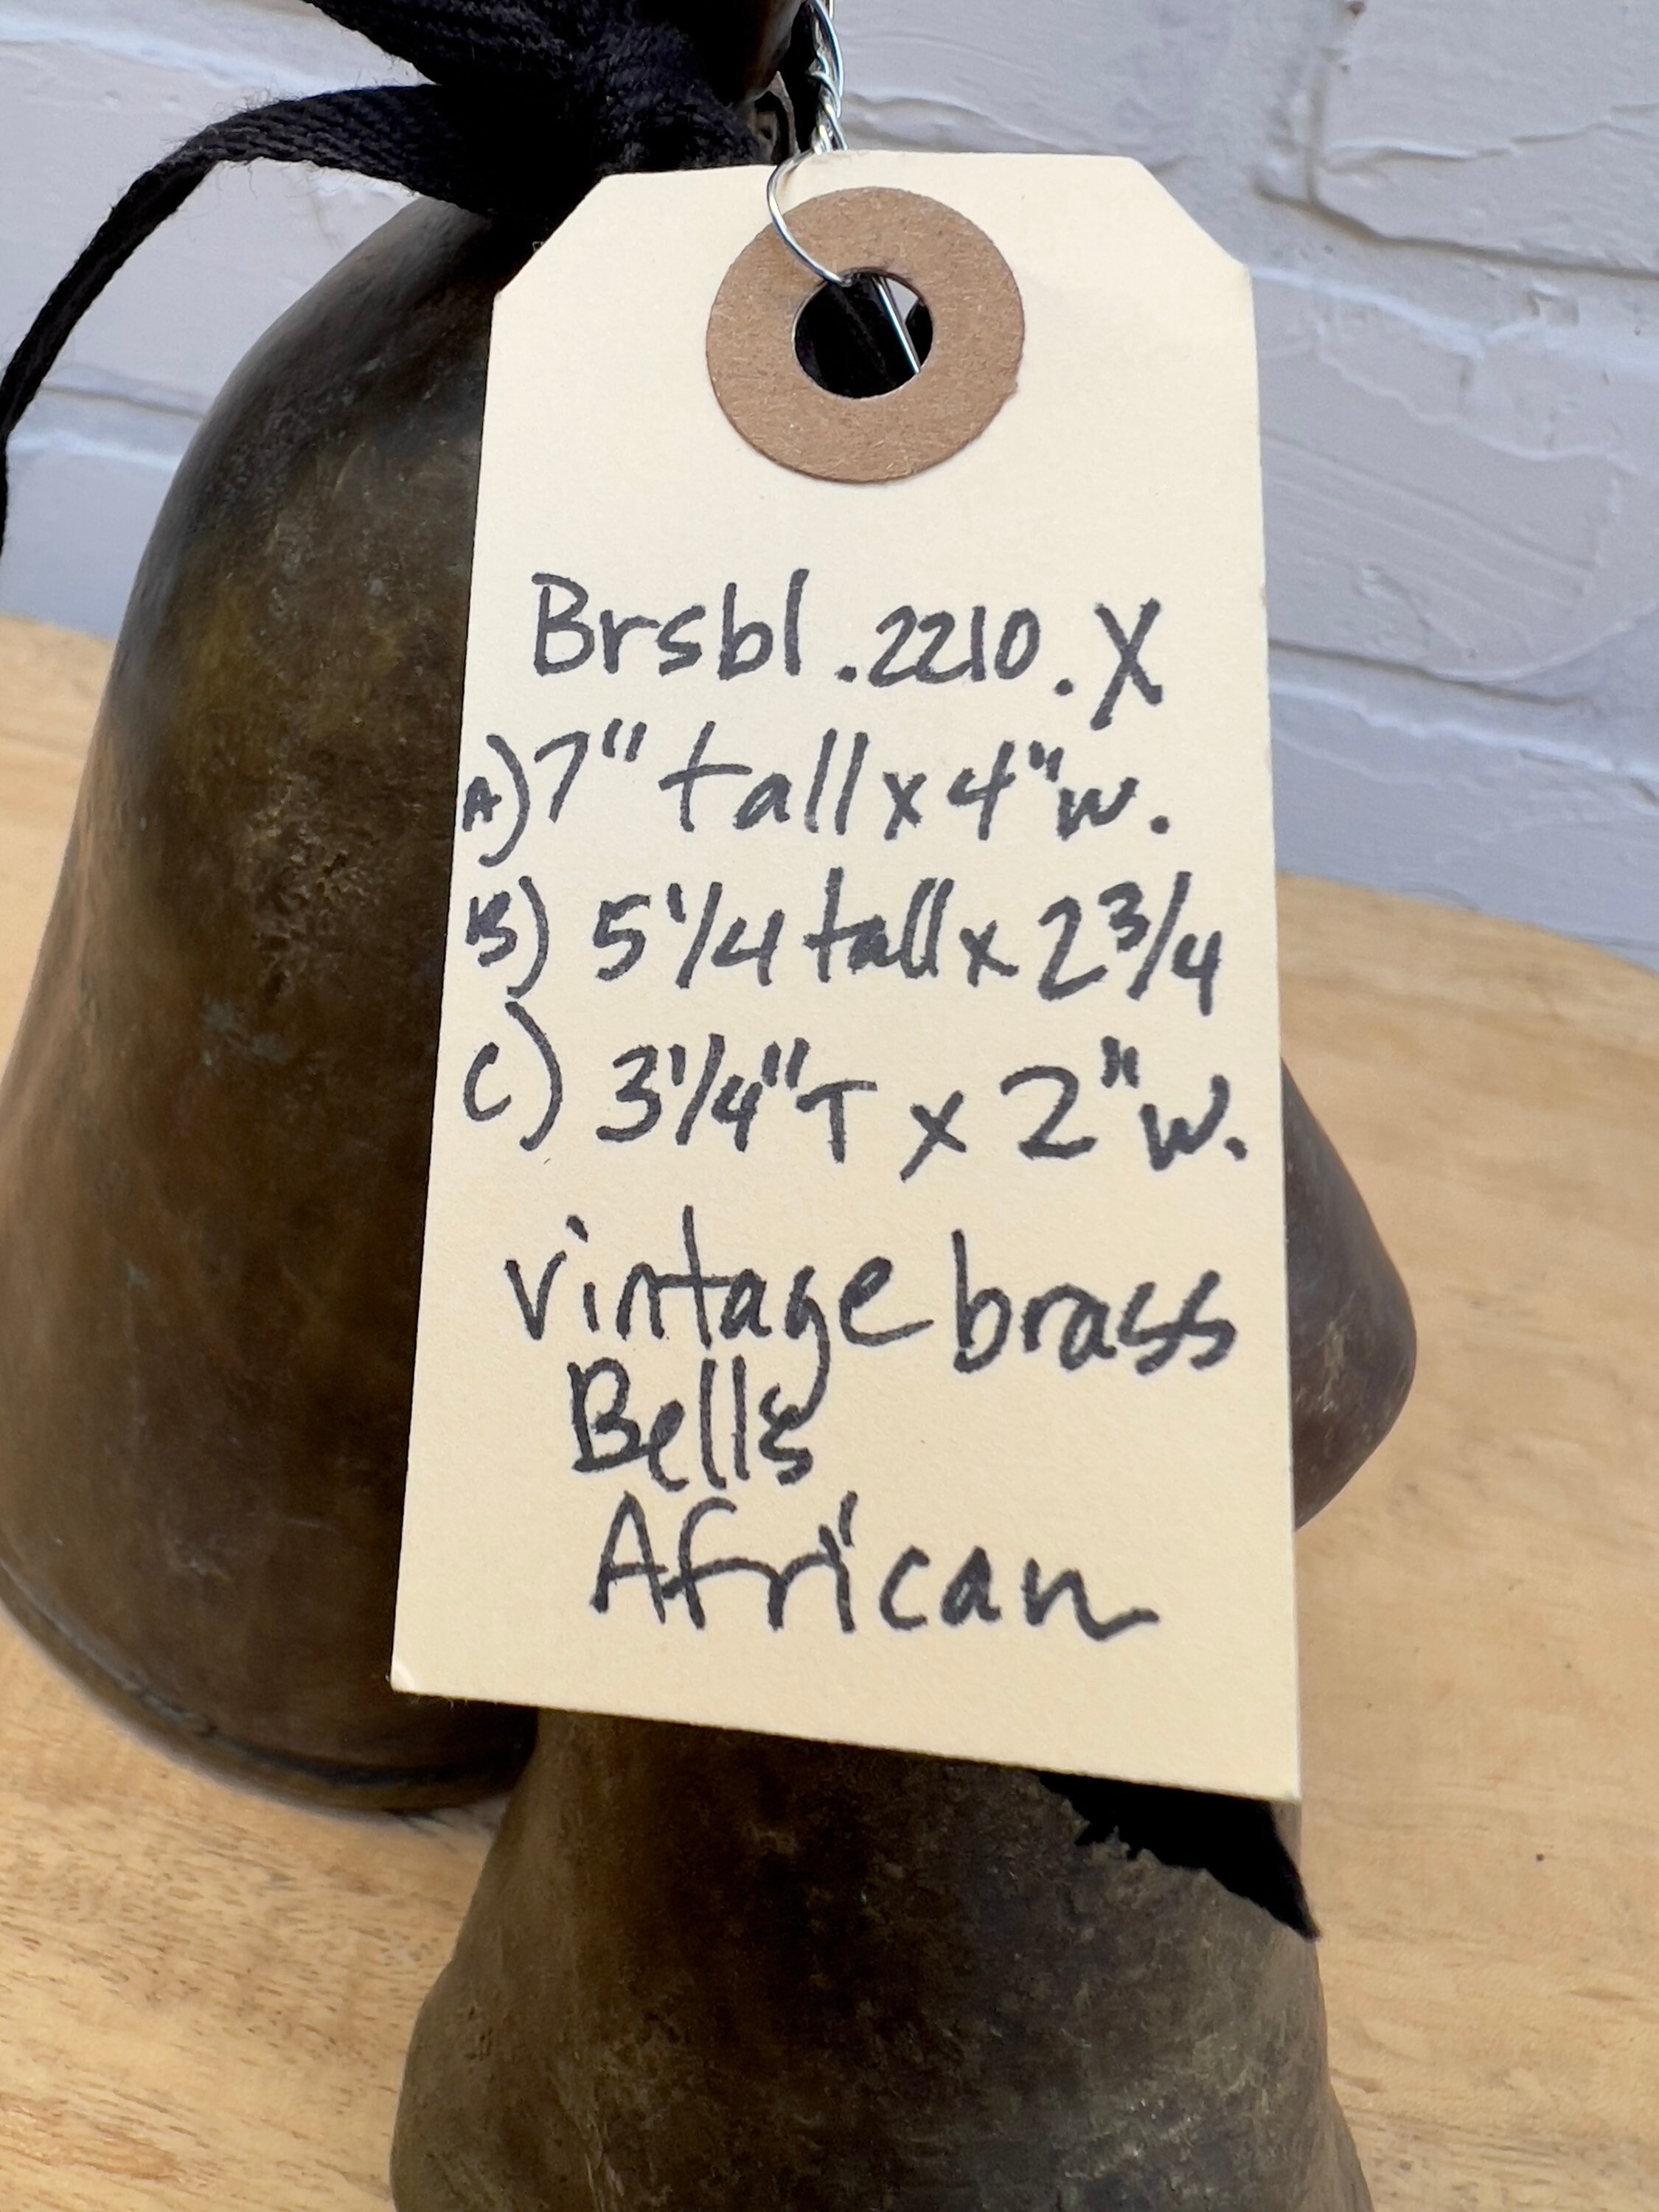 Brsbl.2210.X
A) 7" tall x 4" w.
B) 5 1/4 tall x 2 3/4
C) 3 1/4" T x 2" w.
vintage brass
Bells
African